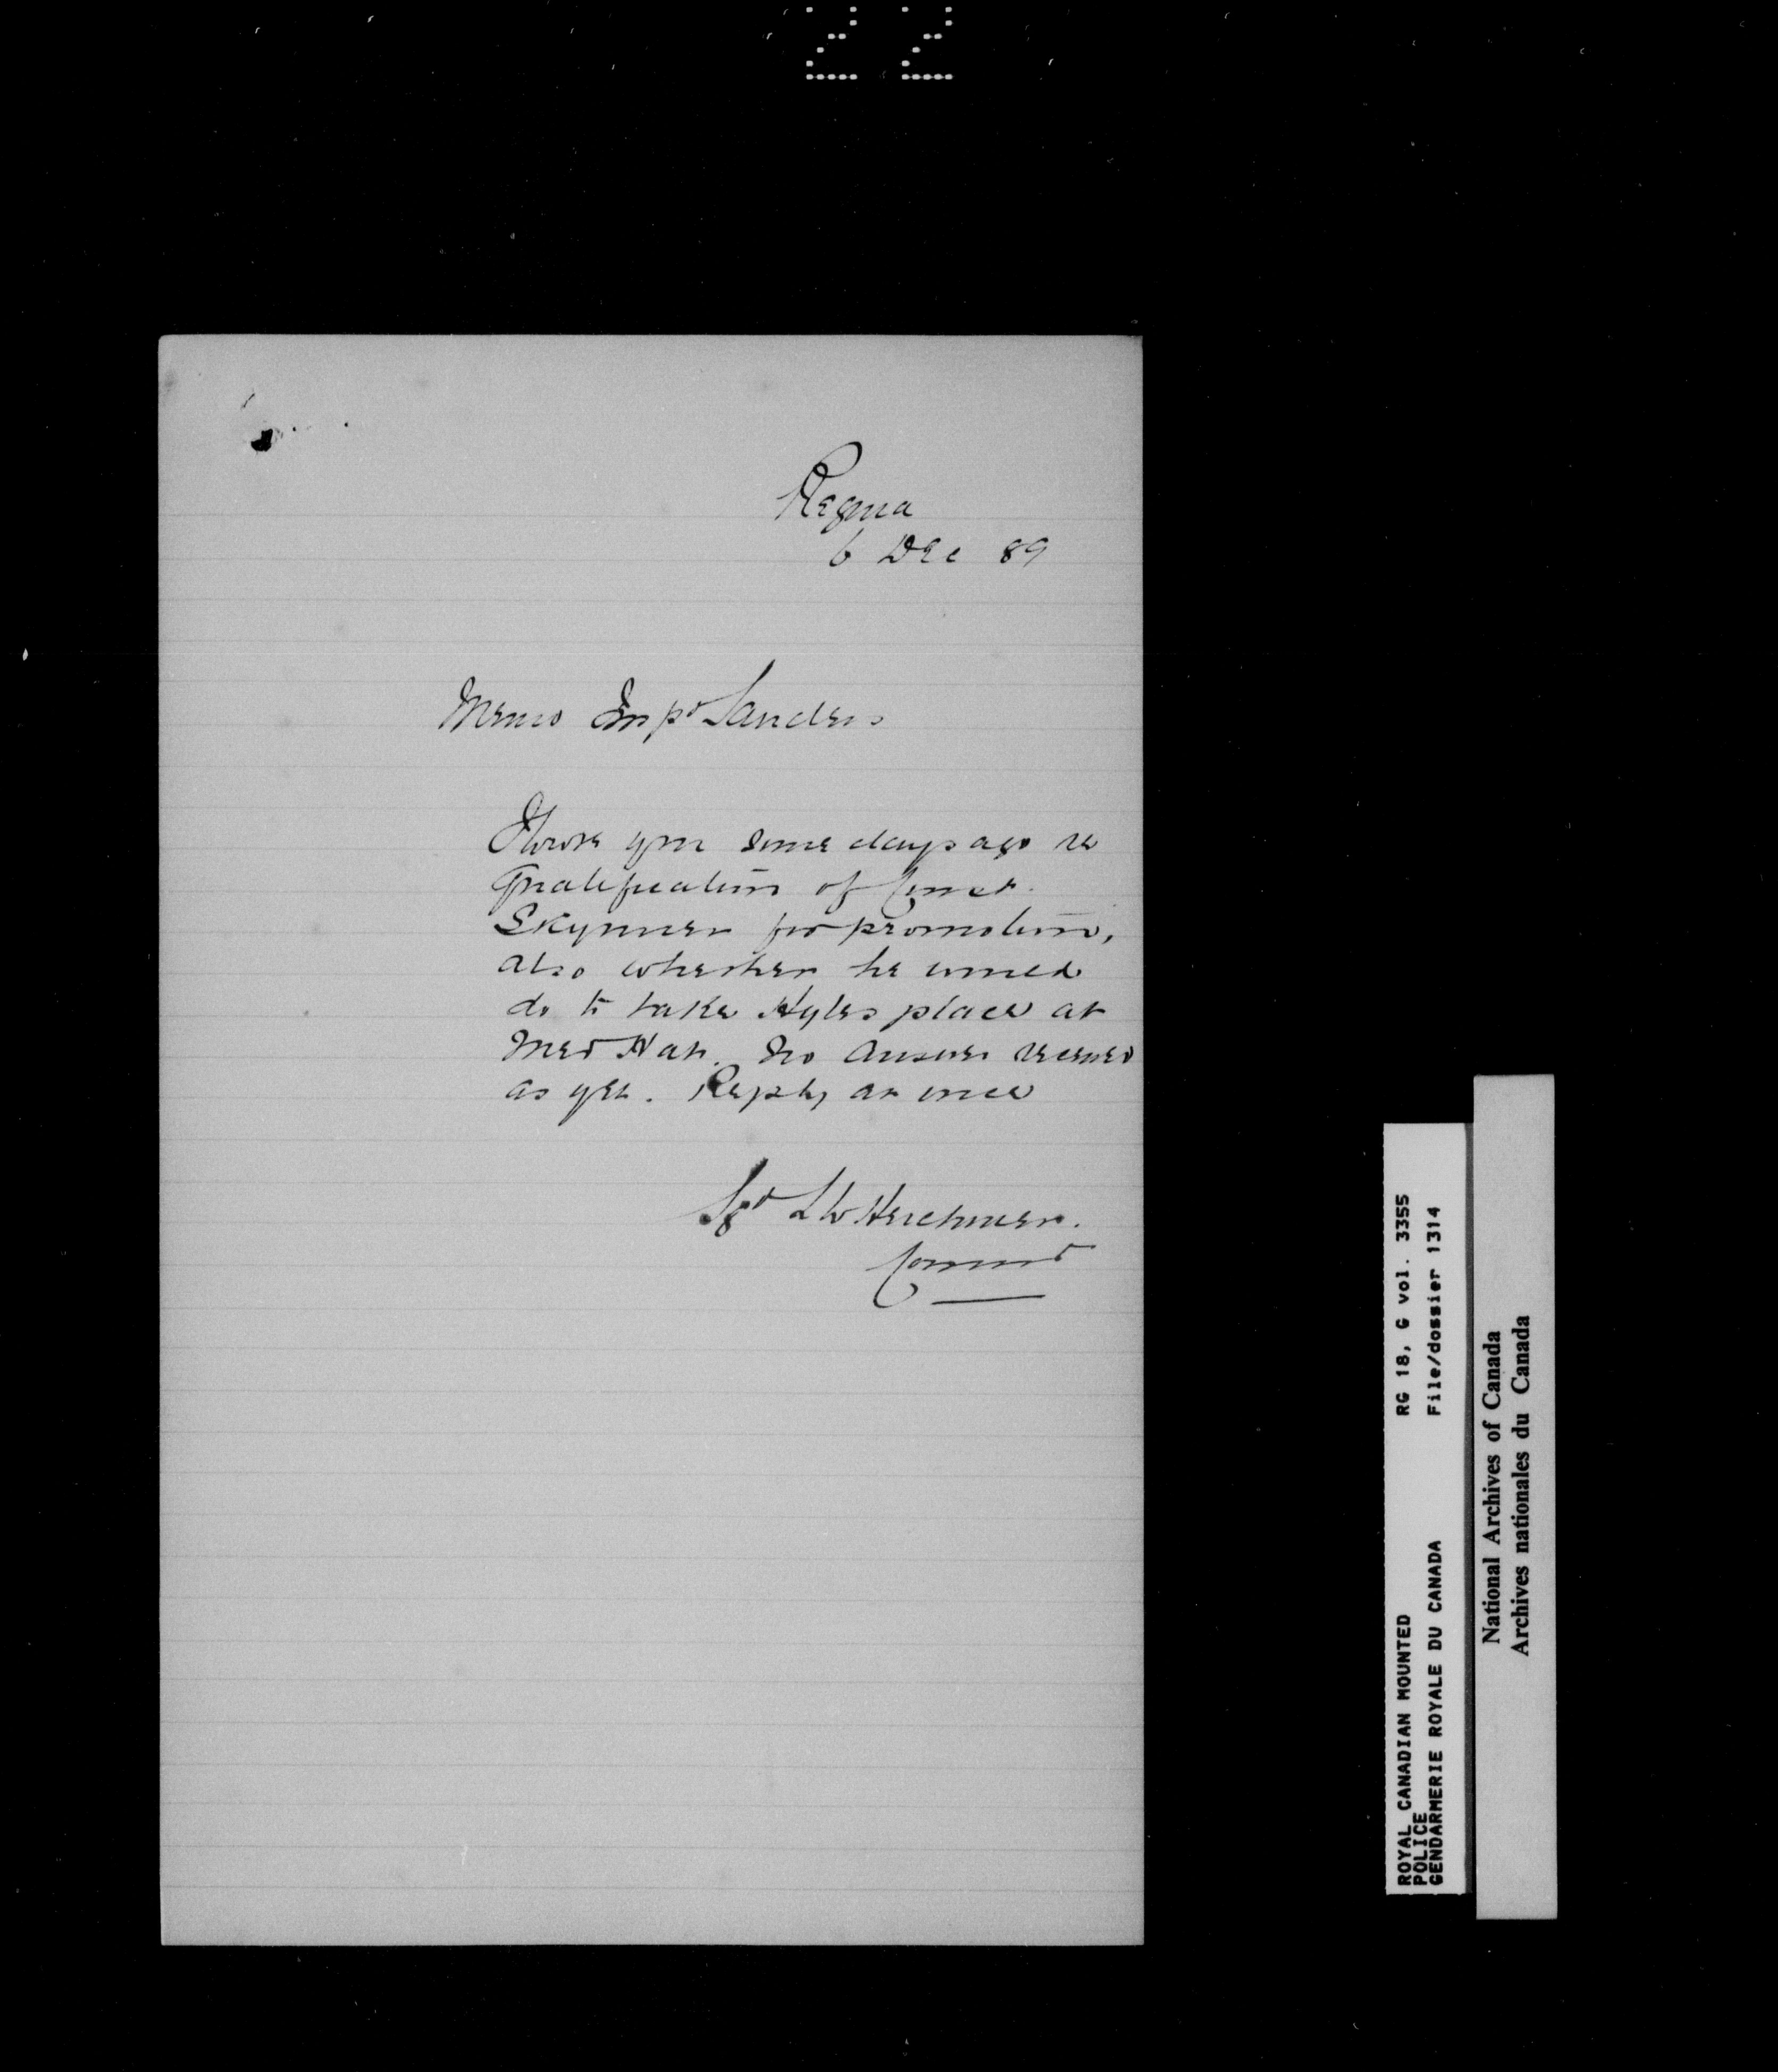 22
Regina
6 Dec 89
Memo Insp<sup>r</sup> Sanders
I wrote you some days ago re
qualification of Const.
Skynner for promotion,
also whether he would
do to take Hyles place at
Med Hat. No answer received
as yet. Reply at once
Sgd L W Herchmer.
Commr
ROYAL CANADIAN MOUNTED
POLICE
GENDARMERIE ROYALE DU CANADA
RG 18, G vol. 3355
File/dossier 1314
National Archives of Canada
Archives nationales du Canada